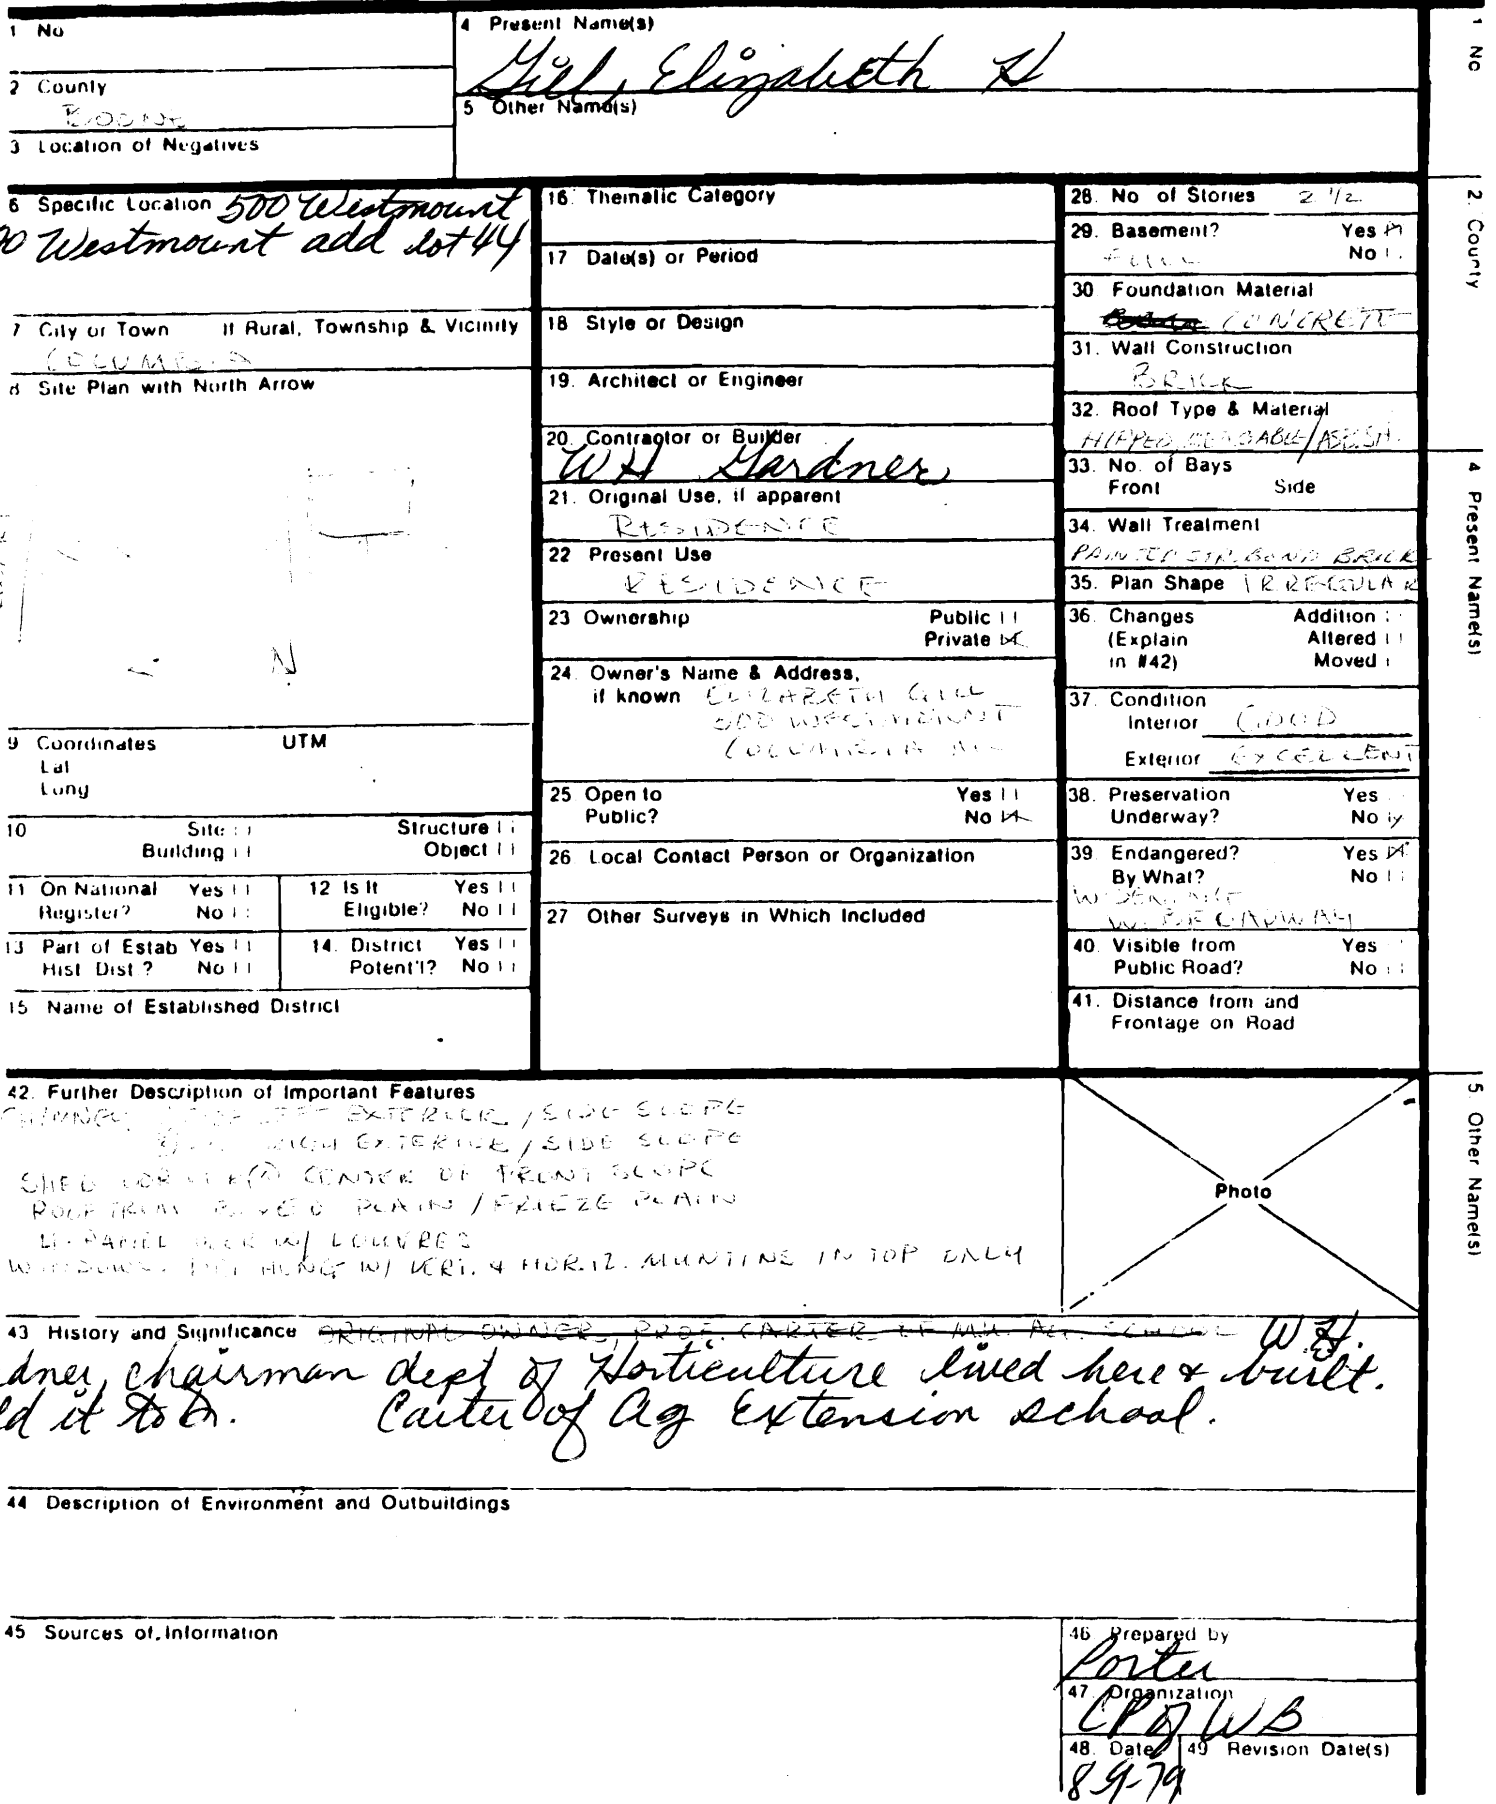 1 No
4 Present Name(s)
Gill, Elizabeth H
2 County
BOONE
5 Other Name(s)
3 Location of Negatives
6 Specific Location 500 Westmount
00 Westmount add lot 44
7 City or Town If Rural, Township & Vicinity
COLUMBIA
8 Site Plan with North Arrow
N
9 Coordinates UTM
Lat
Long
10 Site Structure
Building Object
11 On National Register? Yes No
12 Is It Eligible? Yes No
13 Part of Estab Hist Dist? Yes No
14. District Potent'l? Yes No
15 Name of Established District
16. Thematic Category
17 Date(s) or Period
18 Style or Design
19. Architect or Engineer
20. Contractor or Builder
WH Gardner
21. Original Use, if apparent
RESIDENCE
22 Present Use
RESIDENCE
23 Ownership Public
Private
24. Owner's Name & Address,
if known ELIZABETH GILL
500 WESTMOUNT
COLUMBIA MO
25 Open to Yes
Public? No
26. Local Contact Person or Organization
27 Other Surveys in Which Included
28. No of Stories 2 1/2
29. Basement? Yes
FULL No
30 Foundation Material
CONCRETE
31. Wall Construction
BRICK
32. Roof Type & Material
HIPPED GABLE/ASP.SH.
33. No. of Bays
Front Side
34. Wall Treatment
PAINTED STR. BOND BRICK
35. Plan Shape IRREGULAR
36. Changes Addition
(Explain Altered
in #42) Moved
37. Condition
Interior GOOD
Exterior EXCELLENT
38. Preservation Yes
Underway? No
39 Endangered? Yes
By What? No
WIDENING
W. BROADWAY
40. Visible from Yes
Public Road? No
41. Distance from and
Frontage on Road
42. Further Description of Important Features
CHIMNEY EXTERIOR / SIDE SLOPE
EXTERIOR / SIDE SLOPE
SHED DORMER(S) CENTER OF FRONT SLOPE
ROOF TRIM PLAIN / FRIEZE PLAIN
PANEL DOOR W/ LOUVRES
WINDOWS: HUNG W/ VERT. & HORIZ. MUNTINS IN TOP ONLY
Photo
43 History and Significance ORIGINAL OWNER, PROF. CARTER OF MU. AG. SCHOOL W.H.
dner, chairman dept of Horticulture lived here & built.
ld it to Dr. Carter of Ag Extension school.
44 Description of Environment and Outbuildings
45 Sources of Information
46 Prepared by
Porter
47. Organization
CP of WB
48. Date 49 Revision Date(s)
8-9-79
1 No
2. County
4 Present Name(s)
5 Other Name(s)